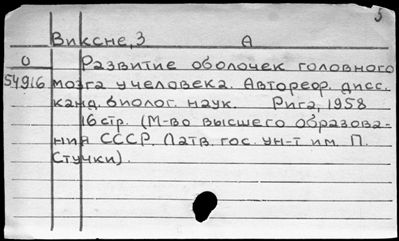 5
Виксне, З А
О Развитие оболочек головного
54916 мозга у человека. Автореф. дисс.
канд. биолог. наук. Рига, 1958
16 стр. (М-во высшего образова-
ния СССР. Латв. гос. ун-т им. П.
Стучки).